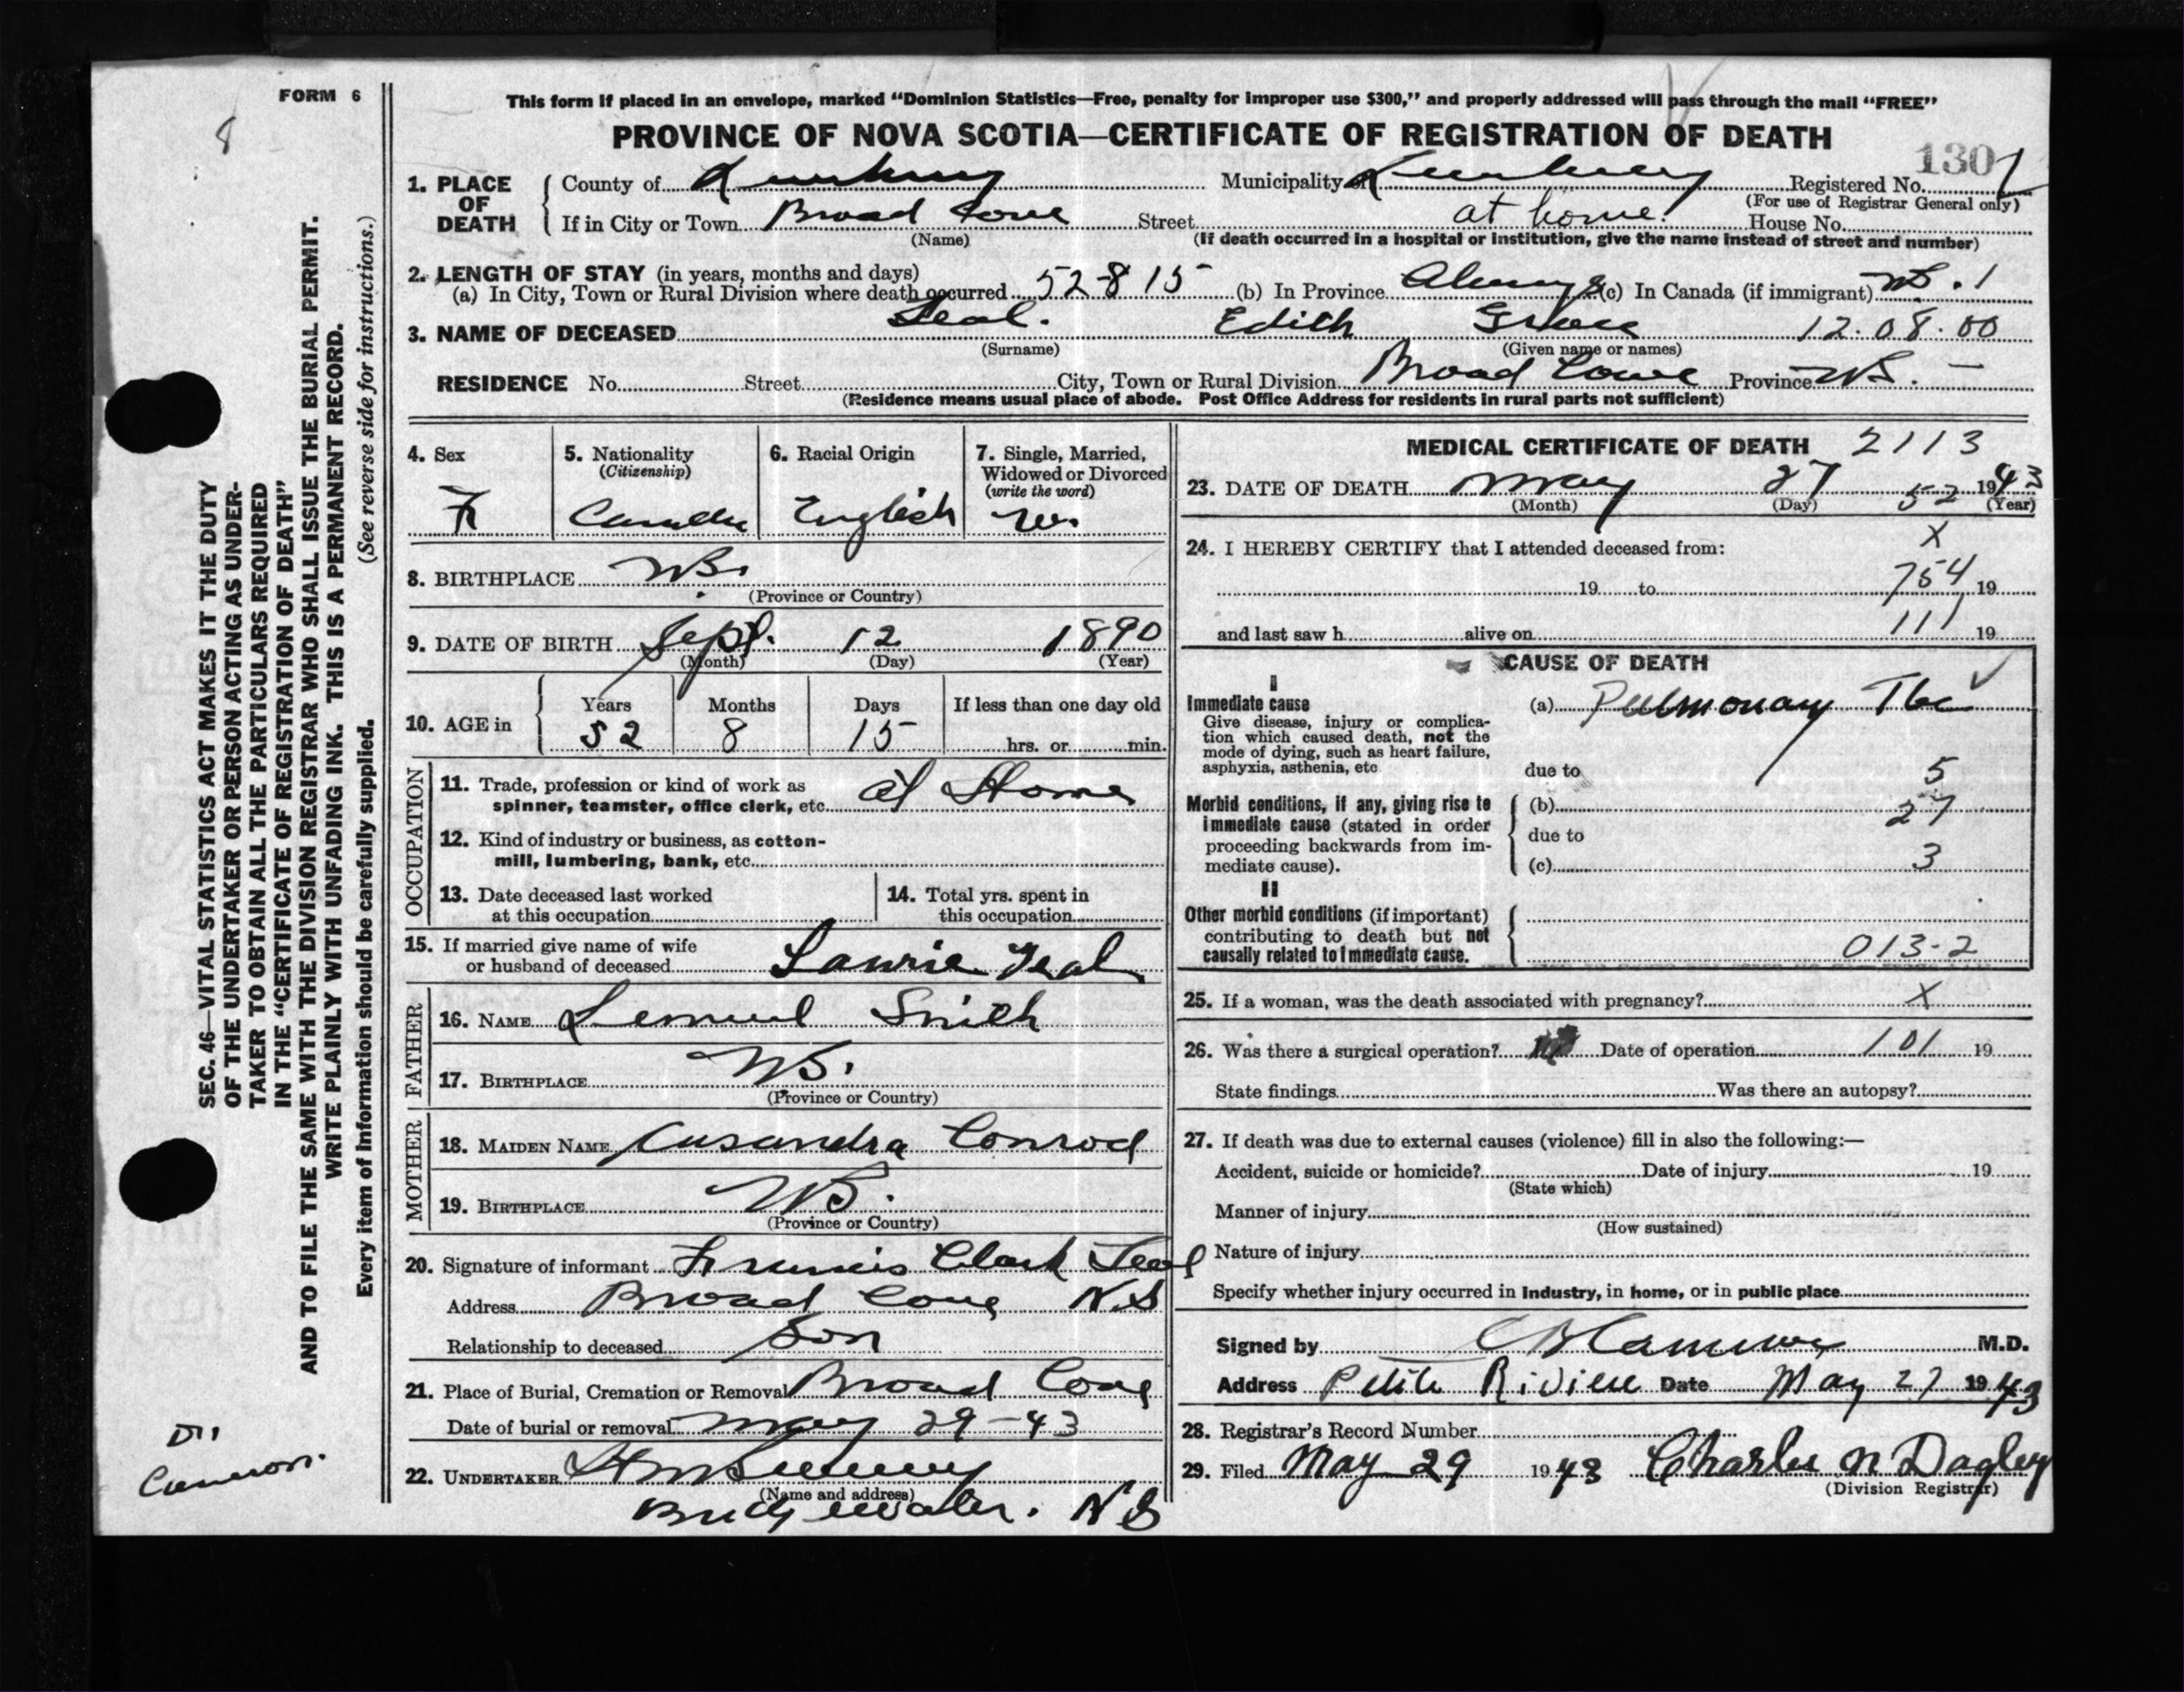 FORM 6
8
This form if placed in an envelope, marked "Dominion Statistics—Free, penalty for improper use $300," and properly addressed will pass through the mail "FREE"
PROVINCE OF NOVA SCOTIA—CERTIFICATE OF REGISTRATION OF DEATH
1307
1. PLACE OF DEATH
County of Lunenburg Municipality of Lunenburg Registered No.
(For use of Registrar General only)
If in City or Town Broad Cove Street at home. House No.
(Name) (If death occurred in a hospital or institution, give the name instead of street and number)
2. LENGTH OF STAY (in years, months and days)
(a) In City, Town or Rural Division where death occurred 52-8 15 (b) In Province Always (c) In Canada (if immigrant) .1
3. NAME OF DECEASED Teal. Edith Grace 12.08.00
(Surname) (Given name or names)
RESIDENCE No. Street City, Town or Rural Division Broad Cove Province NS. —
(Residence means usual place of abode. Post Office Address for residents in rural parts not sufficient)
4. Sex
F
5. Nationality
(Citizenship)
Canada
6. Racial Origin
English
7. Single, Married,
Widowed or Divorced
(write the word)
W.
8. BIRTHPLACE NS.
(Province or Country)
9. DATE OF BIRTH Sept. 12 1890
(Month) (Day) (Year)
10. AGE in
Years Months Days If less than one day old
52 8 15 hrs. or min.
OCCUPATION
11. Trade, profession or kind of work as
spinner, teamster, office clerk, etc. at Home
12. Kind of industry or business, as cotton-
mill, lumbering, bank, etc.
13. Date deceased last worked
at this occupation
14. Total yrs. spent in
this occupation
15. If married give name of wife
or husband of deceased Laurie Teal
FATHER
16. NAME Lemuel Smith
17. BIRTHPLACE NS.
(Province or Country)
MOTHER
18. MAIDEN NAME Cusandra Conrod
19. BIRTHPLACE NS.
(Province or Country)
20. Signature of informant Francis Clark Teal
Address Broad Cove N.S
Relationship to deceased Son
21. Place of Burial, Cremation or Removal Broad Cove
Date of burial or removal May 29-43
22. UNDERTAKER
(Name and address)
Bridgewater. NS
MEDICAL CERTIFICATE OF DEATH 2113
23. DATE OF DEATH May 27 1943
(Month) (Day) 52 (Year)
24. I HEREBY CERTIFY that I attended deceased from: X
19 to 754 19
and last saw h alive on 111 19
CAUSE OF DEATH
I
Immediate cause
Give disease, injury or complica-
tion which caused death, not the
mode of dying, such as heart failure,
asphyxia, asthenia, etc
(a) Pulmonary Tbc
due to 5
Morbid conditions, if any, giving rise to
immediate cause (stated in order
proceeding backwards from im-
mediate cause).
(b) 27
due to
(c) 3
II
Other morbid conditions (if important)
contributing to death but not
causally related to immediate cause.
013-2
25. If a woman, was the death associated with pregnancy? X
26. Was there a surgical operation? Date of operation 101 19
State findings Was there an autopsy?
27. If death was due to external causes (violence) fill in also the following:—
Accident, suicide or homicide? Date of injury 19
(State which)
Manner of injury
(How sustained)
Nature of injury
Specify whether injury occurred in Industry, in home, or in public place
Signed by M.D.
Address Petite Riviere Date May 27 1943
28. Registrar's Record Number
29. Filed May 29 1943 Charles N Dagley
(Division Registrar)
SEC. 46—VITAL STATISTICS ACT MAKES IT THE DUTY
OF THE UNDERTAKER OR PERSON ACTING AS UNDER-
TAKER TO OBTAIN ALL THE PARTICULARS REQUIRED
IN THE "CERTIFICATE OF REGISTRATION OF DEATH"
AND TO FILE THE SAME WITH THE DIVISION REGISTRAR WHO SHALL ISSUE THE BURIAL PERMIT.
WRITE PLAINLY WITH UNFADING INK. THIS IS A PERMANENT RECORD.
Every item of information should be carefully supplied. (See reverse side for instructions.)
Dr.
Cameron.